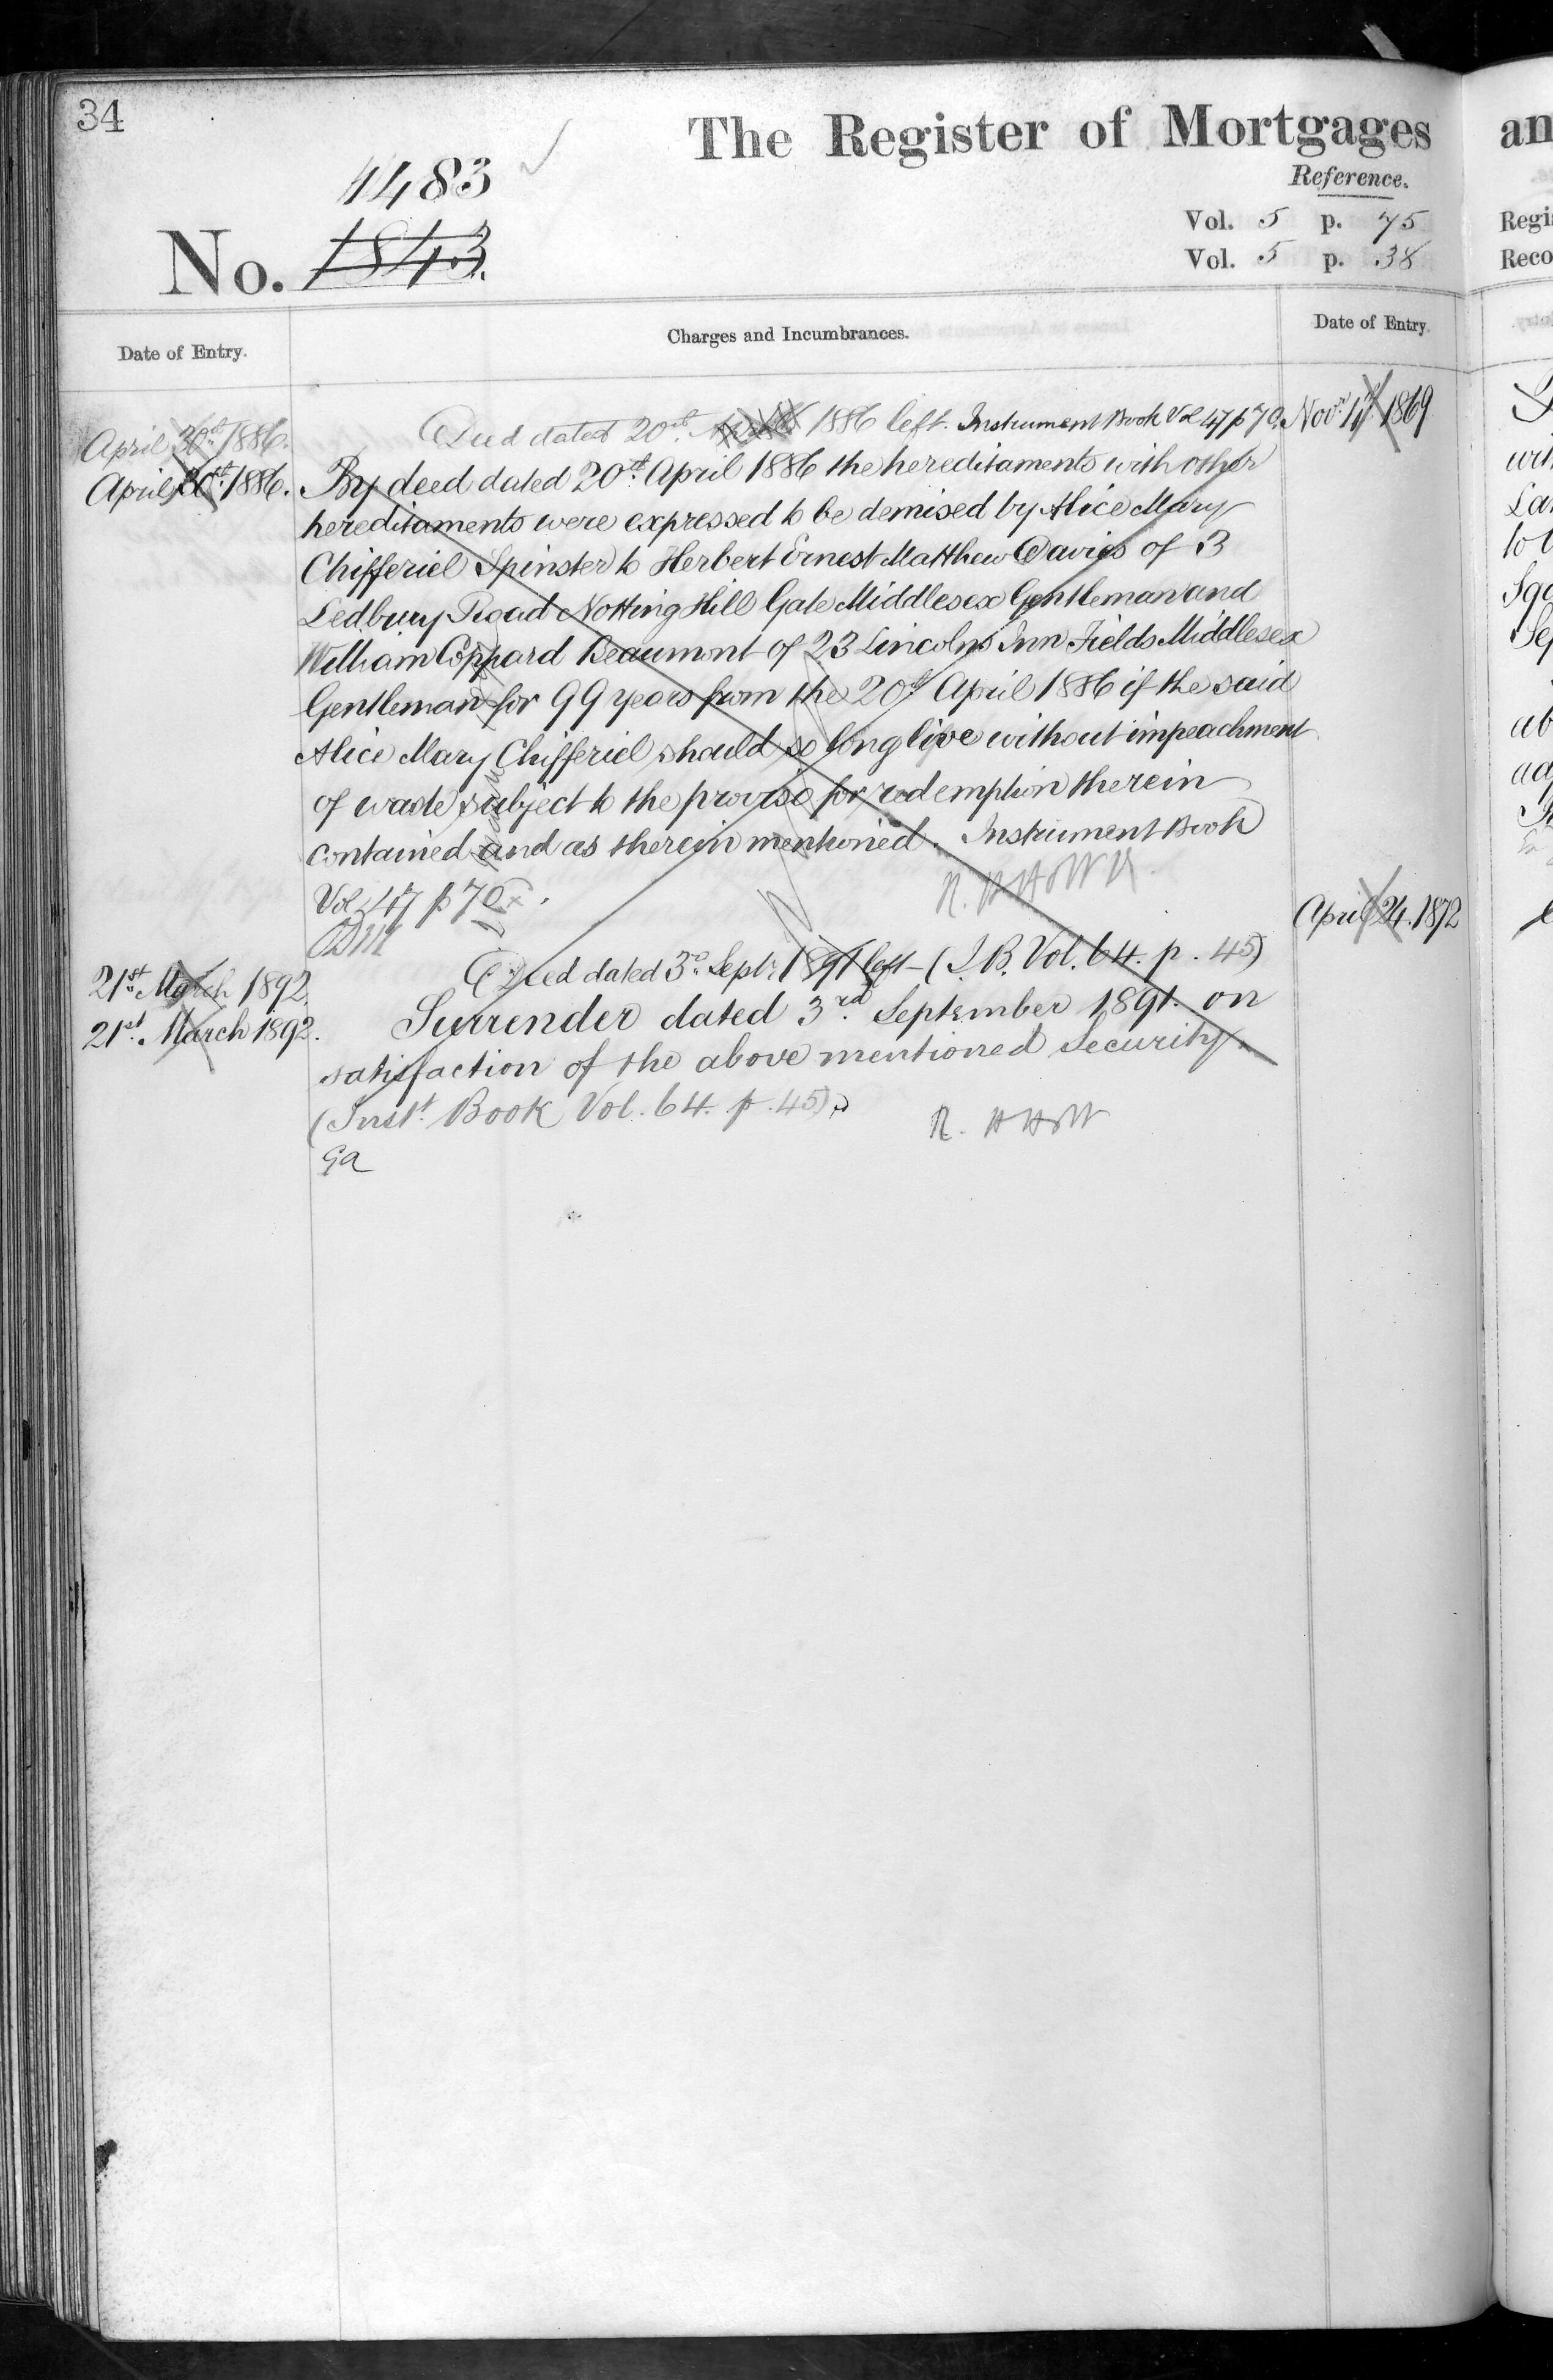 34
The Register of Mortgages
Reference.
1483
No. 1843.
Vol. 5 p. 75
Vol. 5 p. 38
Date of Entry.
Charges and Incumbrances.
Date of Entry.
April 20th 1886. Deed dated 20th April 1886 left. Instrument Book Vol 47 p 70. Novr 11th 1869
April 20th 1886. By deed dated 20th April 1886 the hereditaments with other
hereditaments were expressed to be demised by Alice Mary
Chifferiel Spinster to Herbert Ernest Matthew Davies of 3
Ledbury Road Notting Hill Gate Middlesex Gentleman and
William Coppard Beaumont of 23 Lincolns Inn Fields Middlesex
Gentleman for 99 years from the 20th April 1886 if the said
Alice Mary Chifferiel should so long live without impeachment
of waste subject to the proviso for redemption therein
contained and as therein mentioned. Instrument Book
Vol 47 p 70.
April 24. 1872
21st March 1892. Deed dated 3rd Septr 1891 left - (I.B. Vol. 64. p. 45)
21st March 1892. Surrender dated 3rd September 1891. on
satisfaction of the above mentioned Security.
(Inst. Book Vol. 64. p. 45)
an
Regi
Reco